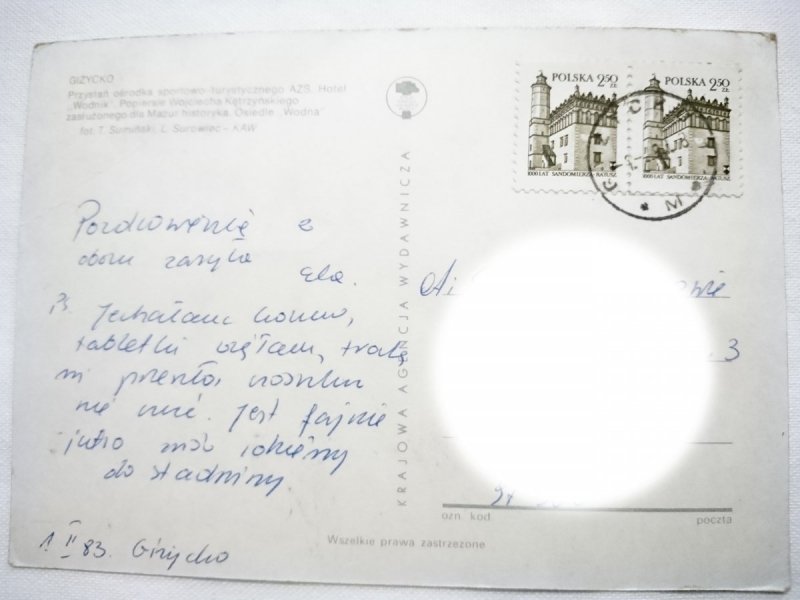 GIŻYCKO
Przystań ośrodka sportowo-turystycznego AZS. Hotel
„Wodnik”. Popiersie Wojciecha Kętrzyńskiego
zasłużonego dla Mazur historyka. Osiedle „Wodna”
fot. T. Sumiński, L. Surowiec – KAW
POLSKA 2.50 ZŁ
1000 LAT SANDOMIERZA-RATUSZ
POLSKA 2.50 ZŁ
1000 LAT SANDOMIERZA-RATUSZ
Pozdrowienia z
obozu zasyła Ela.
Ps. Jechałam
tabletki wzięłam,
nie
Jest fajnie
jutro idziemy
do stadniny.
1 II 83. Giżycko
KRAJOWA AGENCJA WYDAWNICZA
3
ozn. kod
poczta
Wszelkie prawa zastrzeżone